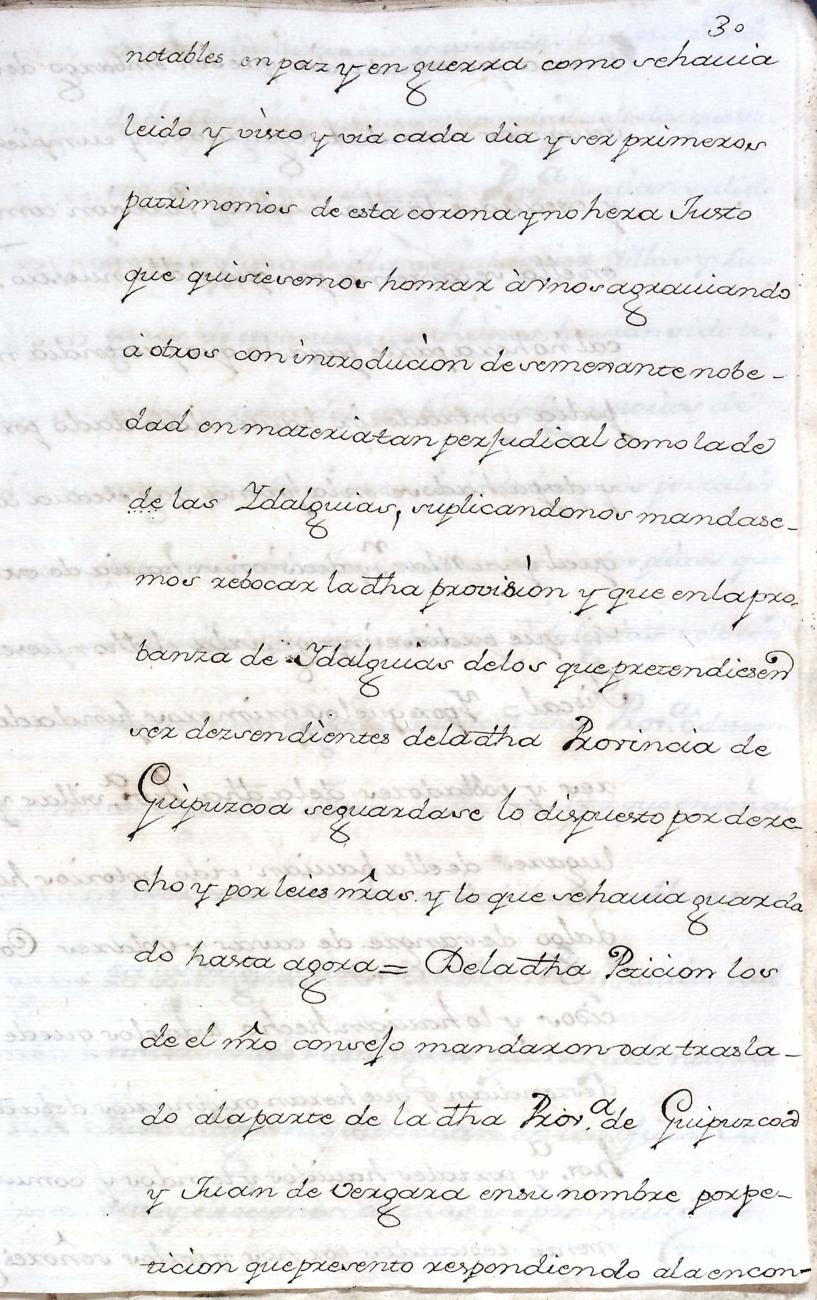 30
notables en paz y en guerra como se hauia
leido y visto y via cada dia y ser primeros
patrimonios de esta corona y no hera Justo
que quisiesemos honrrar à vnos agrauiando
a otros con introducion de semexante nobe-
dad en materia tan perjudical como la de
de las Idalguias, suplicandonos mandase-
mos rebocar la dha provision y que en la pro-
banza de Idalguias de los que pretendiesen
ser dezsendientes de la dha Provincia de
Guipuzcoa se guardase lo dispuesto por dere-
cho y por leies nrãs. y lo que se hauia guarda
do hasta agora = De la dha Peticion los
de el nrõ consejo mandaron dar trasla-
do a la parte de la dha Prov.ª de Guipuzcoa
y Juan de Vergara en su nombre por pe-
ticion que presento respondiendo a la en con-